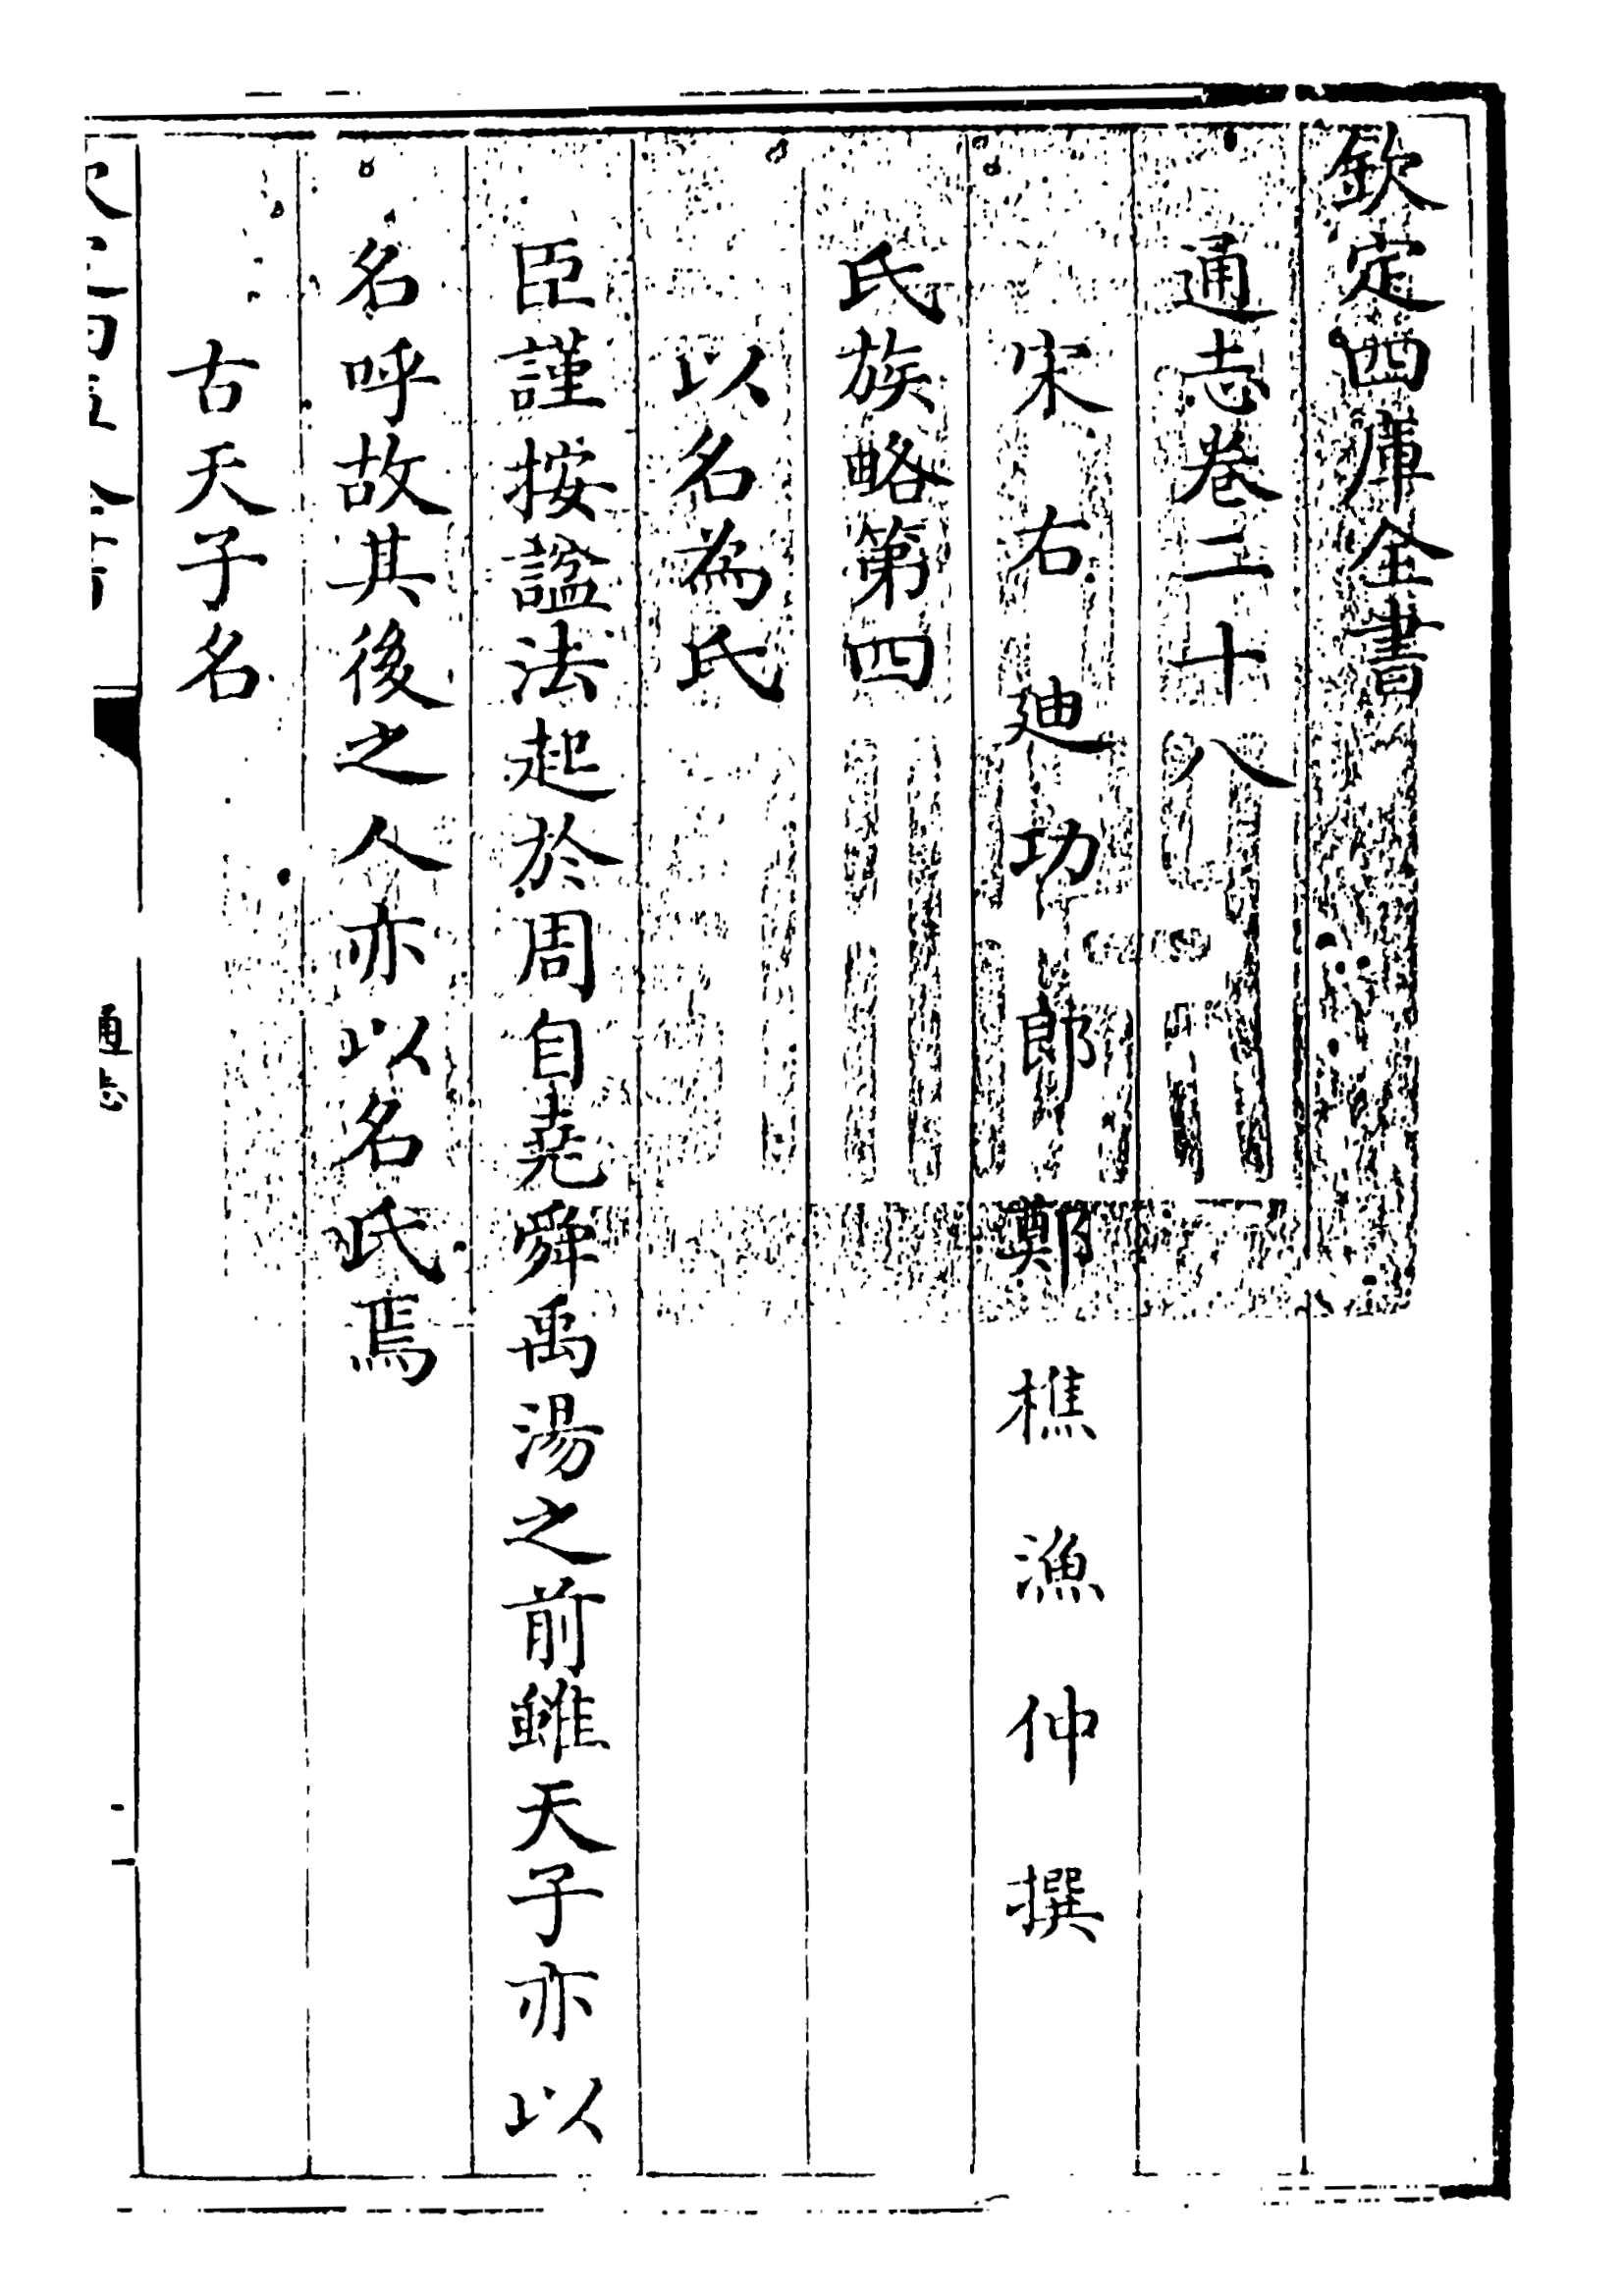 欽定四庫全書
通志卷二十八
宋右廸功郎鄭樵漁仲撰
氏族略第四
以名為氏
臣謹按諡法起於周自堯舜禹湯之前雖天子亦以
名呼故其後之人亦以名氏焉
古天子名
通志